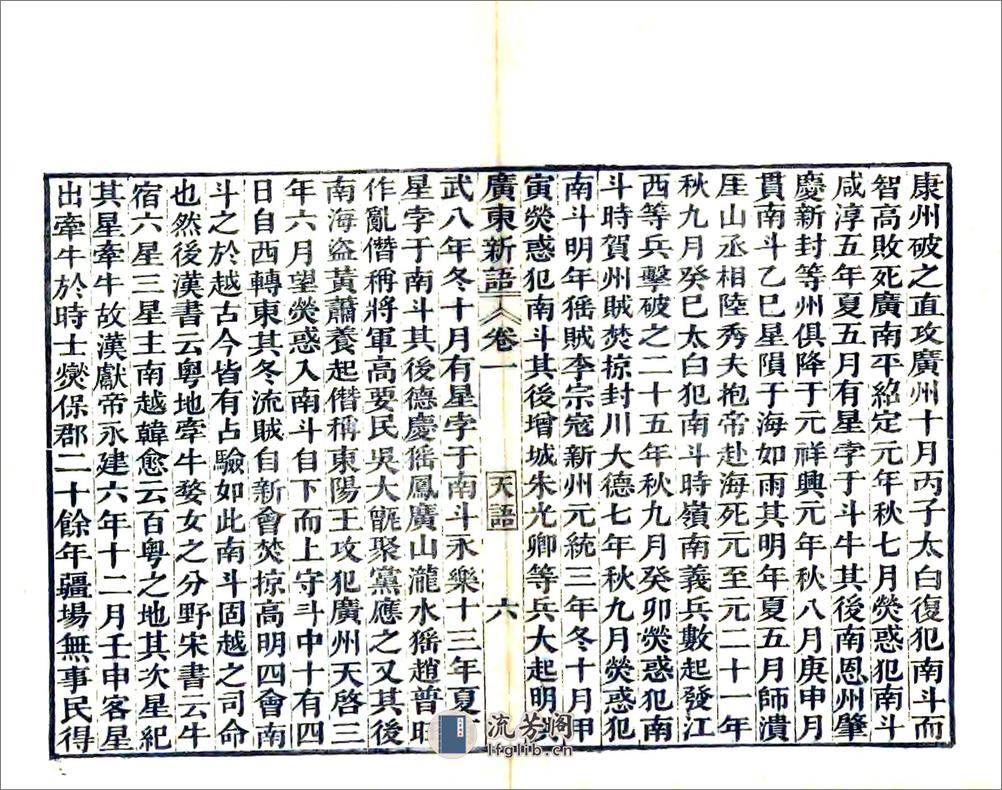 康州破之直攻廣州十月丙子太白復犯南斗而
智高敗死廣南平紹定元年秋七月熒惑犯南斗
咸淳五年夏五月有星孛于斗牛其後南恩州肇
慶新封等州俱降于元祥興元年秋八月庚申月
貫南斗乙巳星隕于海如雨其明年夏五月師潰
厓山丞相陸秀夫抱帝赴海死元至元二十一年
秋九月癸巳太白犯南斗時嶺南義兵數起發江
西等兵擊破之二十五年秋九月癸卯熒惑犯南
斗時賀州賊焚掠封川大德七年秋九月熒惑犯
南斗明年猺賊李宗寇新州元統三年冬十月甲
寅熒惑犯南斗其後增城朱光卿等兵大起明
廣東新語 卷一 天語 六
武八年冬十月有星孛于南斗永樂十三年夏
星孛于南斗其後德慶猺鳳廣山瀧水猺趙普旺
作亂僭稱將軍高要民吳大甑聚黨應之又其後
南海盜黃蕭養起僭稱東陽王攻犯廣州天啓三
年六月望熒惑入南斗自下而上守斗中十有四
日自西轉東其冬流賊自新會焚掠高明四會南
斗之於越古今皆有占驗如此南斗固越之司命
也然後漢書云粵地牽牛婺女之分野宋書云牛
宿六星三星主南越韓愈云百粵之地其次星紀
其星牽牛故漢獻帝永建六年十二月壬申客星
出牽牛於時士燮保郡二十餘年疆場無事民得
流芳閣
lfglib.cn